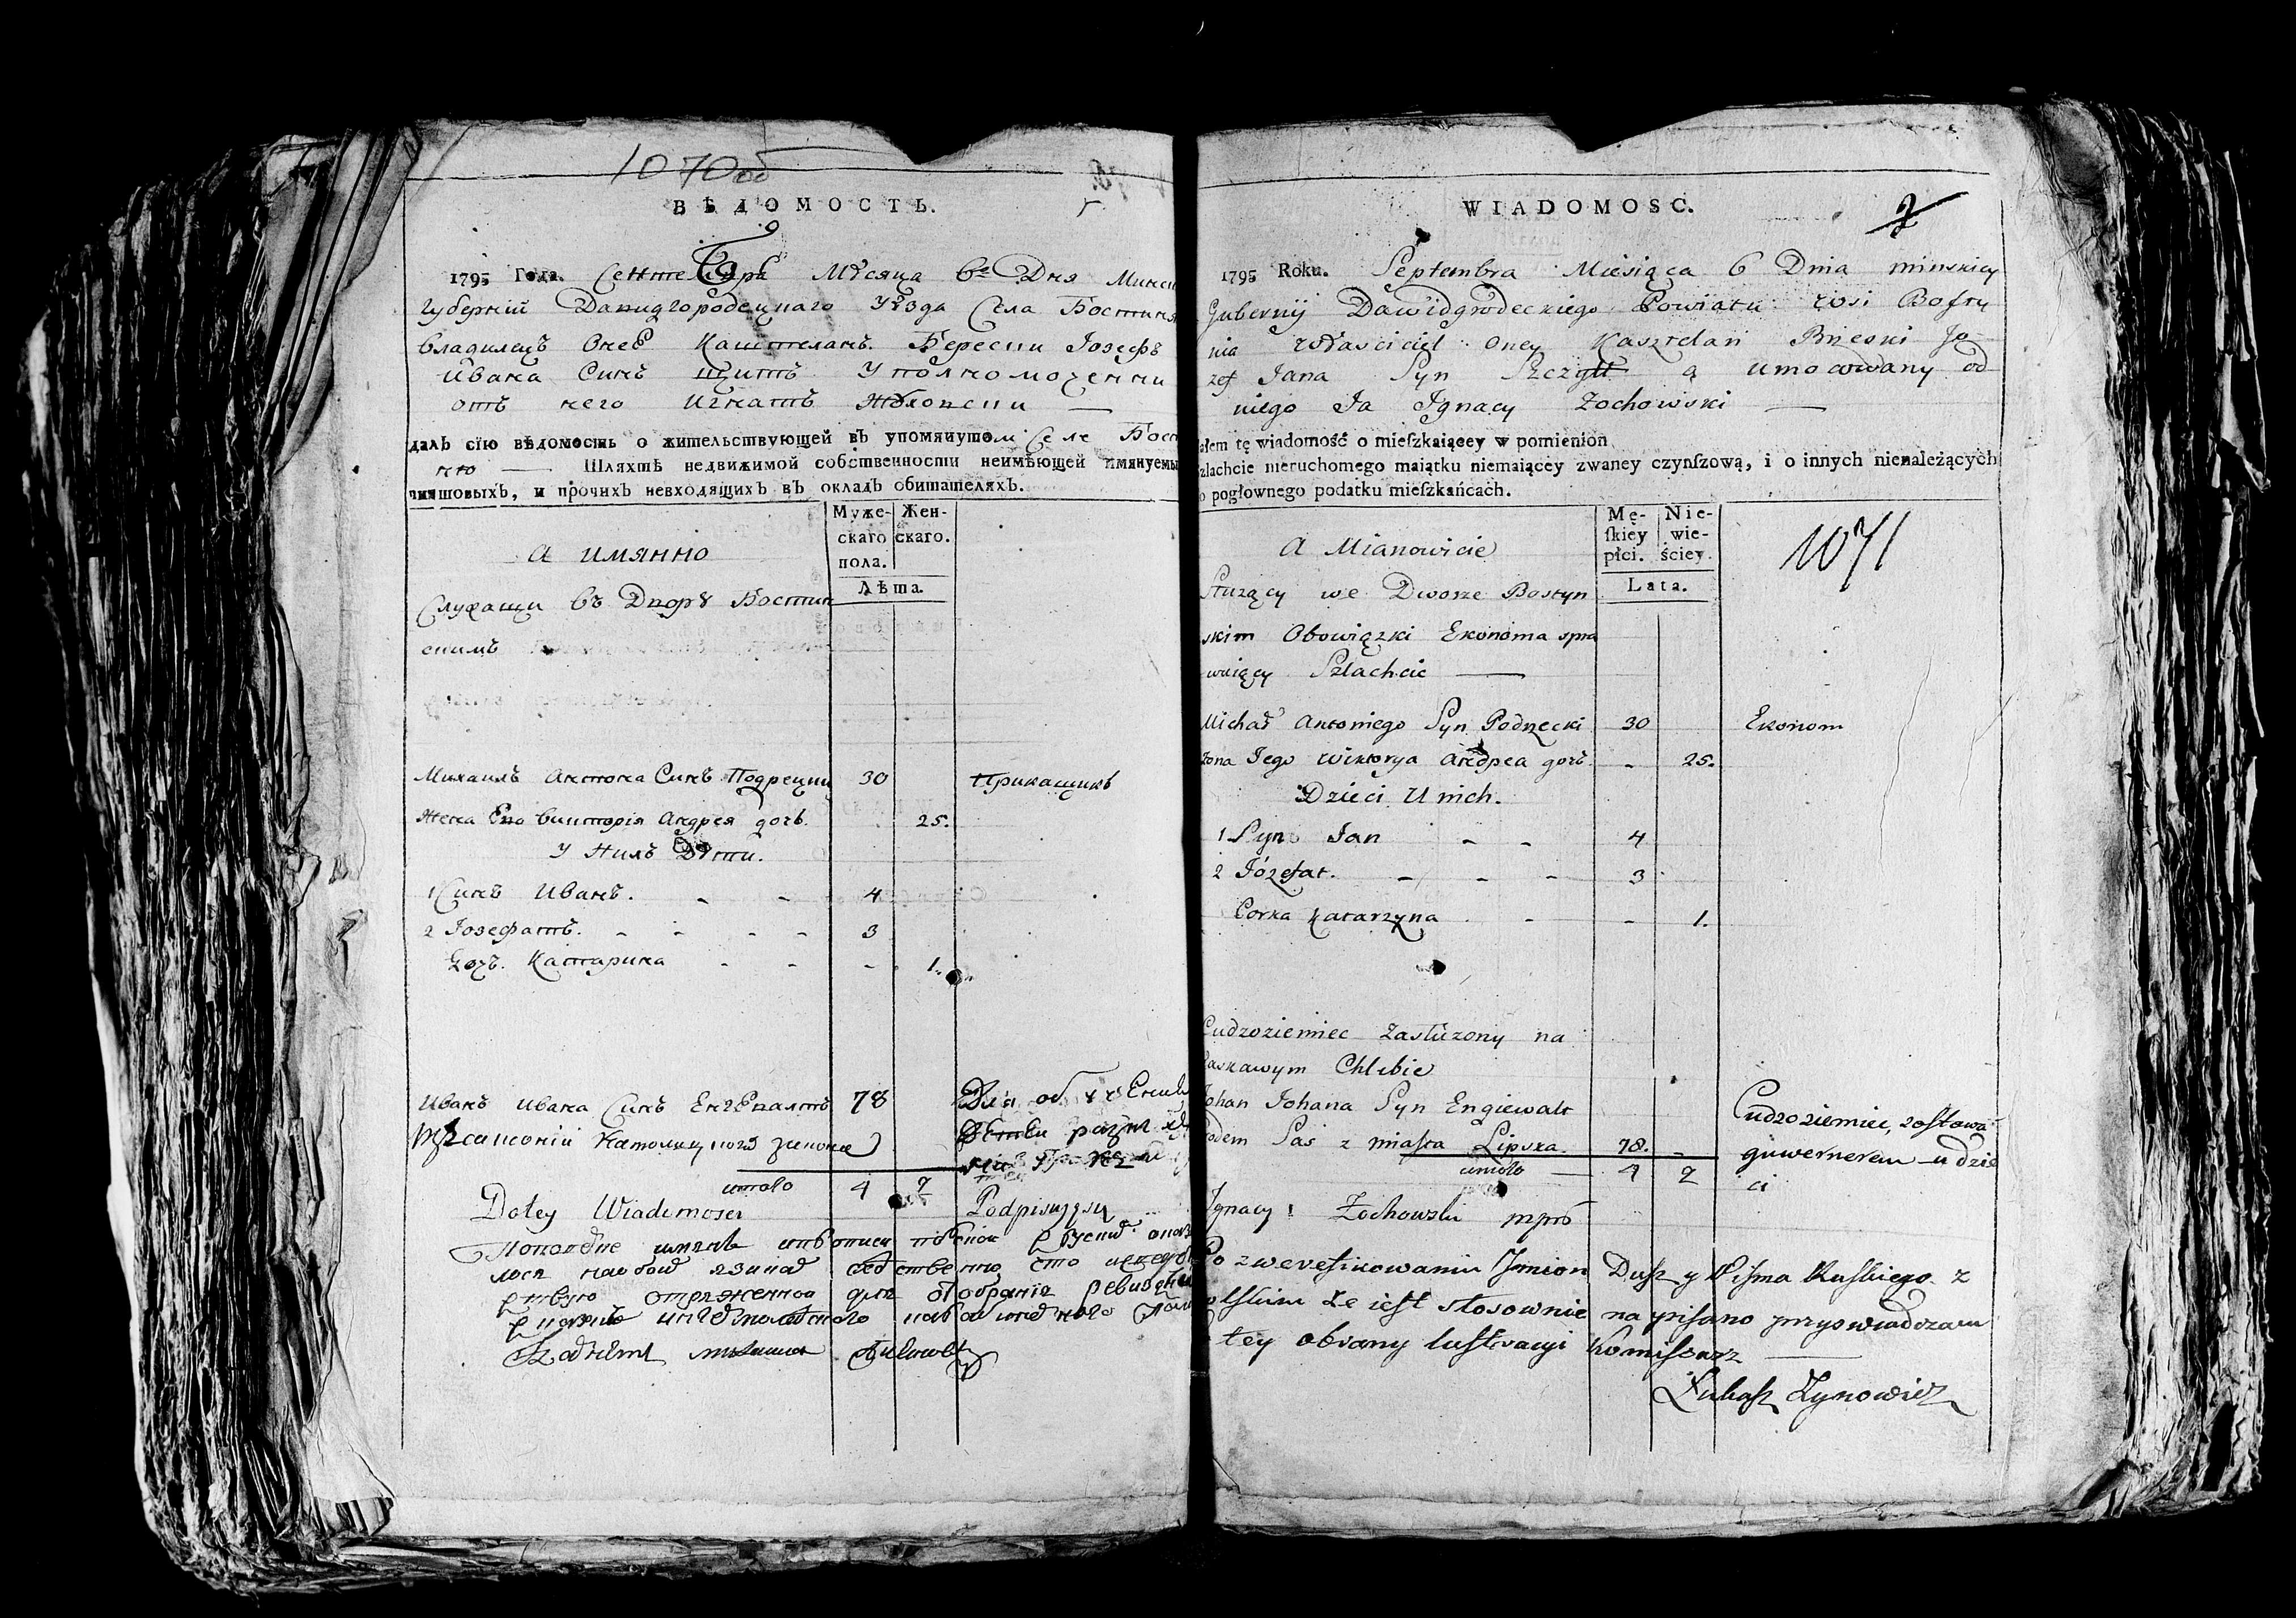 1070 об
ВѢДОМОСТЬ.
1795 Года. Сентебаря Мѣсяца 6го Дня Минск
Губерніи Давидгородецкаго Уѣзда Села Бостиня
Владилецъ Онеѣ Каштелянъ Бересцки Іозефъ
Ивана Синъ Щитъ Уполномоченни
отъ него Игнатъ Жоховски —
далъ сїю вѣдомость о жительствующей въ упомянутомъ Селе Бост
ню — Шляхтѣ недвижимой собственности неимѣющей имянуемы
чиншовыхъ, и прочихъ невходящихъ въ окладъ обитателяхъ.
Муже-скаго пола. Жен-скаго.
Лѣта.
А имянно
Служащи въ Дворѣ Бостин
скимъ
Михаилъ Антона Синъ Подрецки 30 Прикащикъ
Жена Ево Викторія Андрея дочъ. 25.
У Нихъ Дѣти.
1 Синъ Иванъ. - - 4
2 Іозефатъ. - - - - 3
Дочъ. Катарина - - - 1.
Иванъ Ивана Синъ Енгевалтъ 78
Саксоніи Католицкого закона
итого 4 2
Do tey Wiadomosci Podpisuję się
WIADOMOSC. 2
1795 Roku. Septembra Miesiąca 6 Dnia minskiey
Gubernij Dawidgrodeckiego Powiatu wsi Bosty
nia Właściciel oney Kasztelan Brzeski Jo-
zef Jana Syn Szczytt a umocowany od
niego Ja Ignacy Zochowski —
ałem tę wiadomość o mieſzkaiącey w pomienion
zlachcie nieruchomego maiątku niemaiącey zwaney czynſzową, i o innych nienależących
o pogłownego podatku mieſzkańcach.
Mę-ſkiey płci. Nie-wie-ściey.
Lata.
1071
A Mianowicie
Służący we Dworze Bostyn
skim Obowiązki Ekonoma spra
wuiący Szlachcic —
Michał Antoniego Syn Podrzecki 30 Ekonom
żona Jego Wiktorya Андреа дочъ. - 25.
Dzieci U nich.
1 Syn Jan - - 4
2 Józefat. - - - 3
Corka Katarzyna - - 1.
Cudzoziemiec Zasłużony na
Łaskawym Chlebie
Johan Johana Syn Engiewalt
rodem Sas z miasta Lipska 78. - Cudzoziemiec, zostował guwernerem u dzieci
итого 4 2
Ignacy Zochowski mpro
Po zwerefikowaniu Jmion Dusz y Pisma Ruskiego z
olskim że iest stosownie napisano przyswiadczam
tey obrany lustracyi Komisarz —
Łukasz Zynowicz